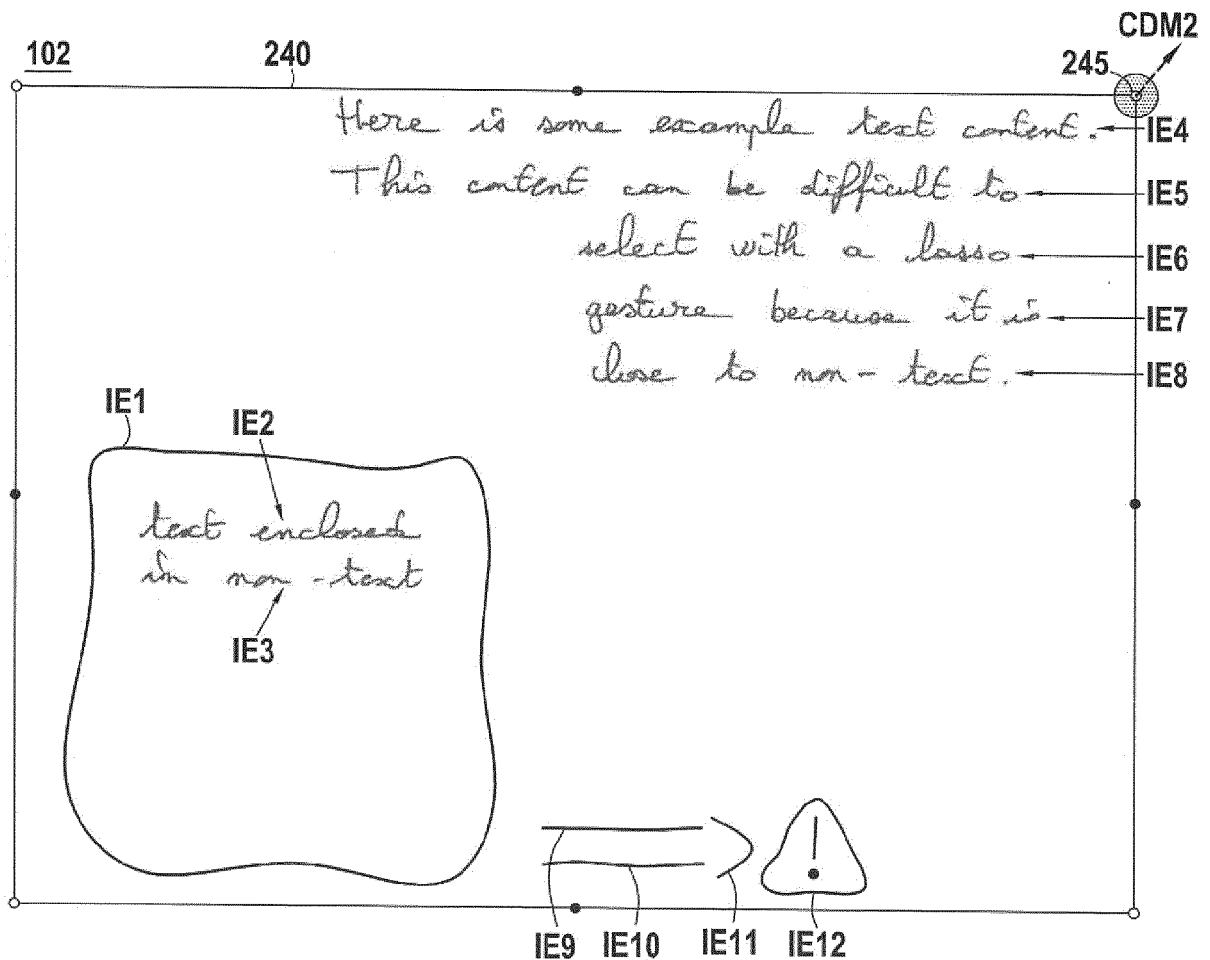 CDM2
102
240
245
Here is some example text content.
IE4
This content can be difficult to
IE5
select with a lasso
IE6
gesture because it is
IE7
close to non-text.
IE8
IE1
IE2
text enclosed
in non-text
IE3
!
IE9 IE10 IE11 IE12